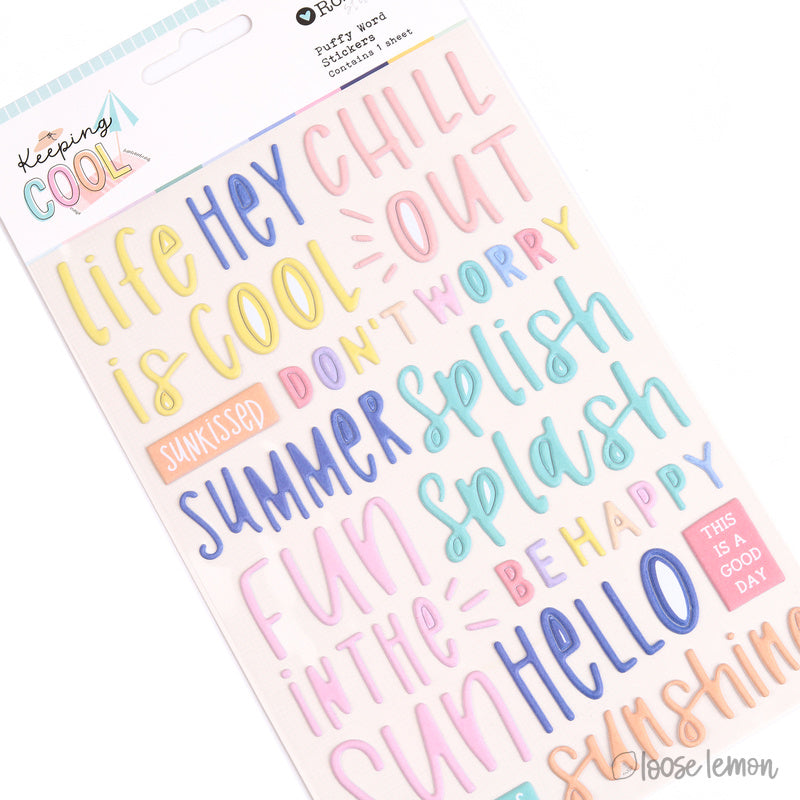 Puffy Word
Stickers
Contains 1 sheet
Keeping
COOL
life
is COOL
HEY
CHILL
OUT
DON'T WORRY
SUNKISSED
SUMMER
splish
splash
FUN
iN THe
SUN
BE HAPPY
THIS
IS A
GOOD
DAY
HeLLO
sunshine
loose lemon